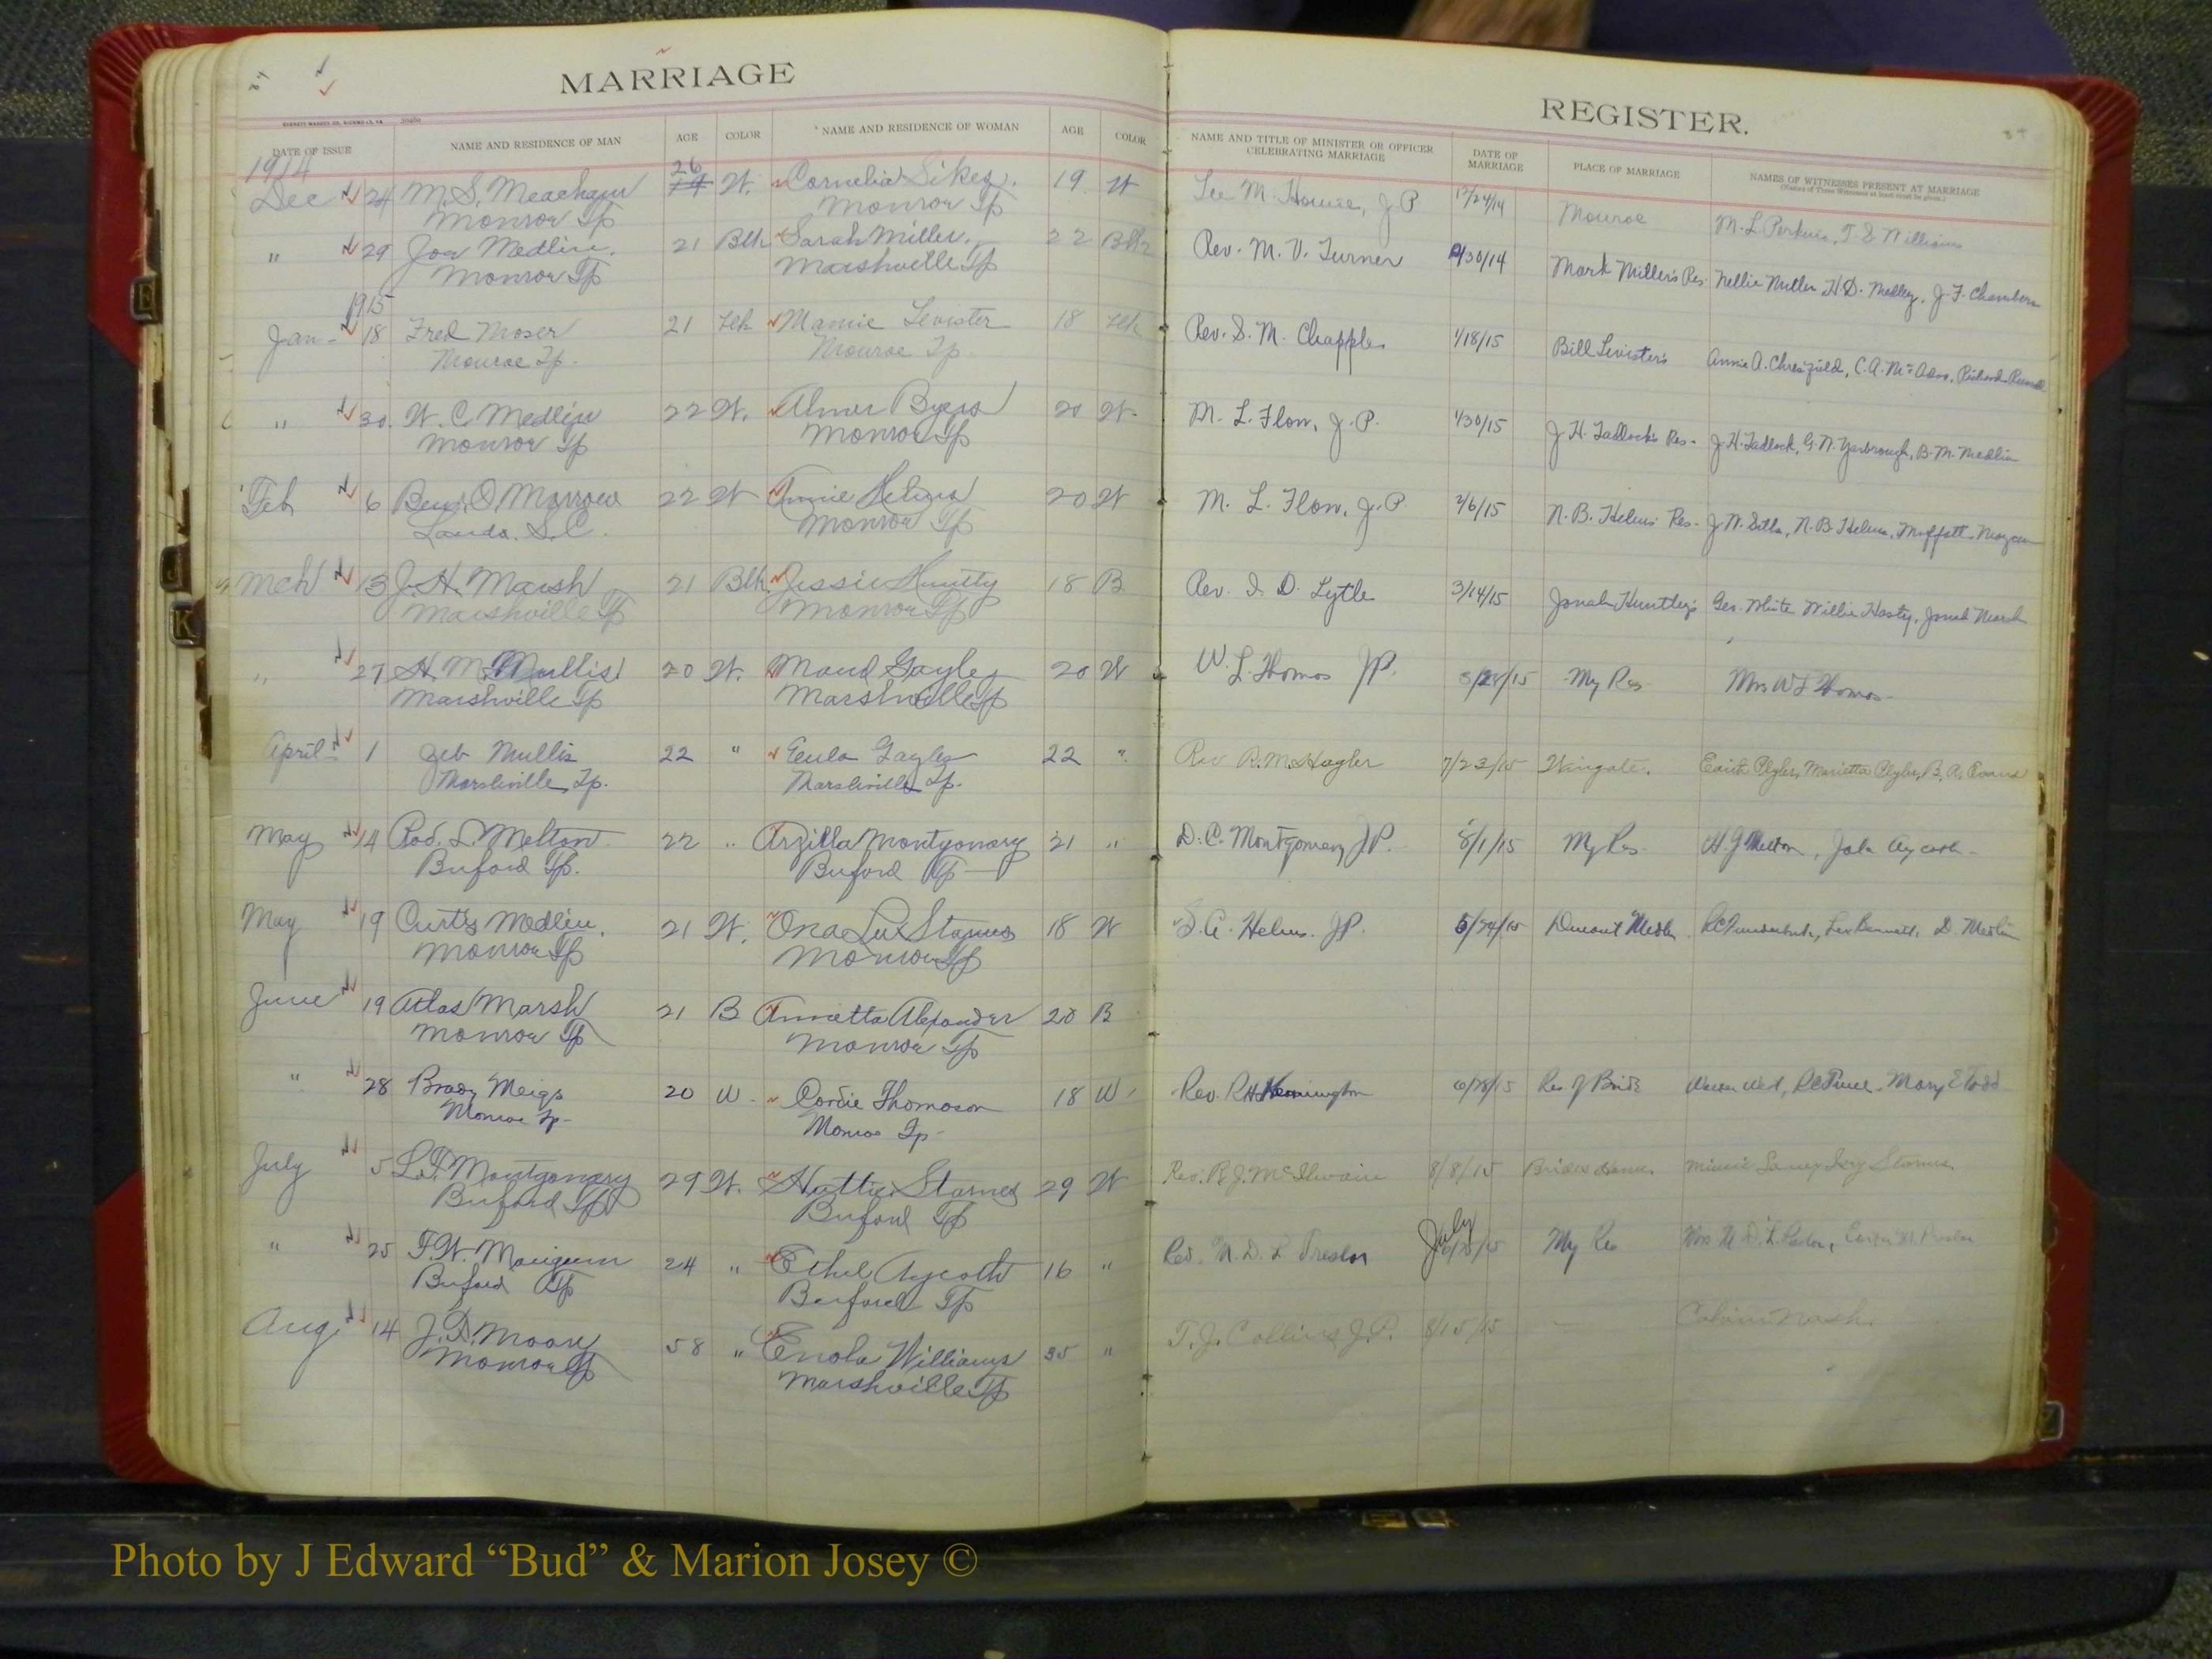 MARRIAGE REGISTER.
DATE OF ISSUE NAME AND RESIDENCE OF MAN AGE COLOR NAME AND RESIDENCE OF WOMAN AGE COLOR NAME AND TITLE OF MINISTER OR OFFICER CELEBRATING MARRIAGE DATE OF MARRIAGE PLACE OF MARRIAGE NAMES OF WITNESSES PRESENT AT MARRIAGE
1914
Dec 24 M. S. Meacham 26 W. Cornelia Sikes. 19 W Lee M. House, J.P 12/24/14 Monroe M. L. Perkins, T. S. Williams
Monroe Tp Monroe Tp
" 29 Joe Medlin. 21 Blk Sarah Miller. 22 Blk Rev. M. V. Turner 12/30/14 Mark Miller's Res. Nellie Miller H. D. Medley, J. F. Chambers
Monroe Tp Marshville Tp
1915
Jan 18 Fred Moser 21 Mamie Levister 18 Rev. S. M. Chapple 1/18/15 Bill Levister's Annie A. C. A. McAdoo, Richard
Monroe Tp. Monroe Tp.
" 30. W. C. Medlin 22 W. Byers 20 W. M. L. Flow, J.P. 1/30/15 J. H. Tadlock's Res- J. H. Tadlock, G. N. Yarbrough, B. M. Medlin
Monroe Tp Monroe Tp
Feb 6 Benj. O. Morrow 22 W Annie Helms 20 W M. L. Flow, J.P. 2/6/15 N. B. Helms Res- N. B. Helms, Moffatt
S.C. Monroe Tp
Mch 13 J. H. Marsh 21 Blk. Jessie Huntly 18 B Rev. I. D. Lytle 3/14/15 Jonah Huntley's Geo. White Willie Hasty, Marsh
Marshville Tp Monroe Tp
" 27 H. M. Mullis 20 W. Maud Gayley 20 W W. L. Thomas JP. /15 My Res Mrs W L Thomas-
Marshville Tp Marshville Tp
April 1 Zeb Mullis 22 " Eula Gayley 22 " Rev R. M. Hagler 7/23/15 Wingate. Plyler, Marietta Plyler, B. A. Evans
Marshville, Tp. Marshville Tp.
May 14 Rod. L. Melton 22 " Arzilla Montgomery 21 " D. C. Montgomery JP. 8/1/15 My Res- H. J Melton, Aycoth-
Buford Tp. Buford Tp
May 19 Curtis Medlin. 21 W. Ona Lee Starnes 18 W S. A. Helms. JP. 5/ /15 Funderburk, Lee Bennett, D. Medlin
Monroe Tp Monroe Tp
June 19 Atlas Marsh 21 B Annetta Alexander 20 B
Monroe Tp Monroe Tp
" 28 Brady Meigs 20 W Cordie Thomason 18 W Rev. R H Kennington 6/28/15 Res of Bride Mary E Todd
Monroe Tp- Monroe Tp-
July 5 Montgomery 29 W. Hattie Starnes 29 W Rev. R. J. McIlwain 8/8/15 Brides Home Minnie Starnes
Buford Tp Buford Tp
" 25 F. W. Mangum 24 " Ethel Aycoth 16 " Rev. M. D. L Preslar July /15 My Res
Buford Tp Buford Tp
Aug 14 J. D. Moore 58 " Enola Williams 35 " T. J. Collins J.P. 8/15/15 — Calvin Nash.
Monroe Tp Marshville Tp
Photo by J Edward “Bud” & Marion Josey ©